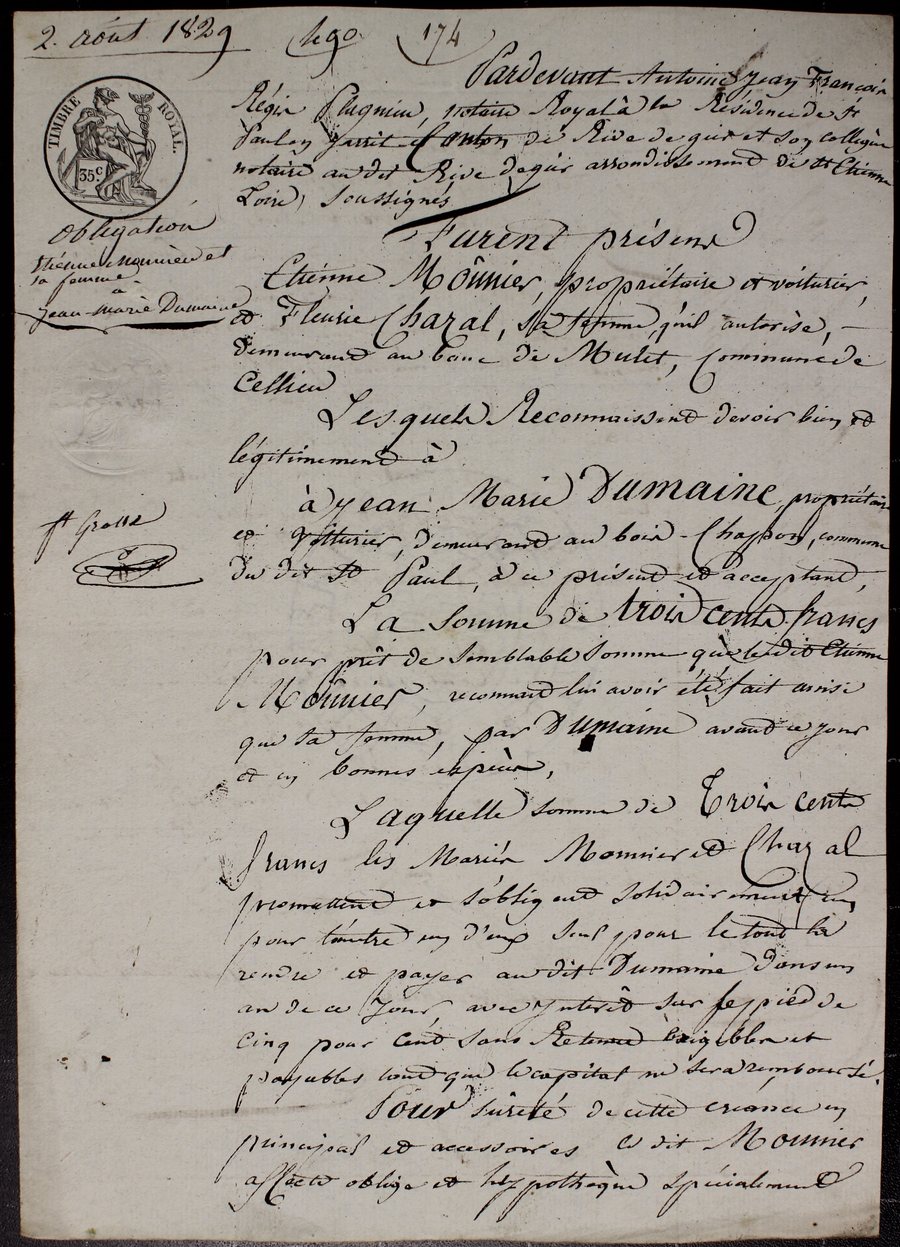 2. août 1829
174
TIMBRE ROYAL.
35 C
Pardevant Antoine Jean François
Régis notaire Royal à la Résidence de St
Paul en Jarrit Canton de Rive de gier et son collègue
notaire au dit Rive de gier arrondissement de St Etienne
Loire, soussignés
Obligation
Etienne Mounier et
sa femme
à
Jean-Marie Dumaine
Furent présens
Etienne Moûnier, propriétaire et voiturier,
et Fleurie Chazal, sa femme, qu'il autorise,
demeurand au banc de Mulet, Commune de
Cellieu
Lesquels Reconnaissend devoir bien et
légitimemend à
à Jean Marie Dumaine, propriétaire
et Voiturier, demeurand au bois-Chappon, commune
du dit St Paul, à ce présend et acceptand,
ft Grosse
La somme de trois cents francs
pour prêt de semblable somme que le dit Etienne
Moûnier, reconnaid lui avoir été fait ainsi
que sa femme, par Dumaine avand ce jour
et en bonnes espèces,
Laquelle somme de Trois cents
francs les Mariés Mounier et Chazal
promettend et s'obligend solidairement, un
pour l'autre un d'eux seul pour le toud la
rendre et payer au dit Dumaine dans un
an de ce Jour, avec Intérêt sur le pied de
cinq pour cend sans Retenue Exigibles et
payables tand que le capital ne sera remboursé.
Pour sûreté de cette créance en
principal et accessoires le dit Mounier
affecte oblige et hypothèque spécialemend